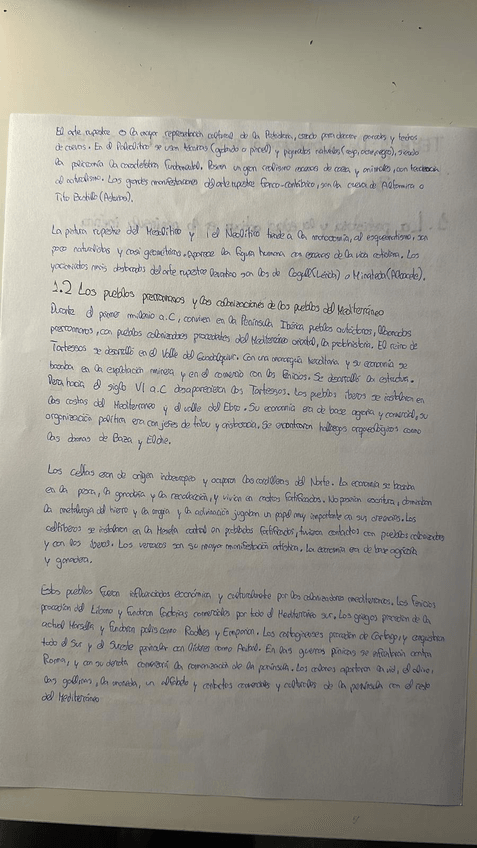 El arte rupestre es la mayor representación cultural de la Prehistoria, creado para decorar paredes y techos
de cuevas. En el Paleolítico se usan técnicas (grabado o pincel) y pigmentos naturales (rojo, ocre, negro), siendo
la policromía la característica fundamental. Poseen un gran realismo escenas de caza y animales, con tendencia
al naturalismo. Las grandes manifestaciones del arte rupestre franco-cantábrico, son la cueva de Altamira o
Tito Bustillo (Asturias).
La pintura rupestre del Mesolítico y el Neolítico tiende a la monocromía, al esquematismo, son
poco naturalistas y casi geométricas. Aparece la figura humana con escenas de la vida cotidiana. Los
yacimientos más destacados del arte rupestre levantino son los de Cogull (Lérida) o Minateda (Albacete).
1.2 Los pueblos prerromanos y las colonizaciones de los pueblos del Mediterráneo
Durante el primer milenio a.C, conviven en la Península Ibérica pueblos autóctonos, llamados
prerromanos, con pueblos colonizadores procedentes del Mediterráneo oriental, la protohistoria. El reino de
Tartessos se desarrolló en el Valle del Guadalquivir. Con una monarquía hereditaria y su economía se
basaba en la explotación minera y en el comercio con los Fenicios. Se desarrolló la escritura.
Pero hacia el siglo VI a.C desaparecieron los Tartessos. Los pueblos iberos se instalaron en
las costas del Mediterraneo y el valle del Ebro. Su economía era de base agraria y comercial, su
organización política era con jefes de tribu y aristocracia. Se encontraron hallazgos arqueológicos como
las damas de Baza y Elche.
Los celtas eran de origen indoeuropeo y ocuparon las cordilleras del Norte. La economía se basaba
en la pesca, la ganadería y la recolección, y vivían en castros fortificados. No poseían escritura, dominaban
la metalurgia del hierro y la magia y la adivinación jugaban un papel muy importante en sus creencias. Los
celtíberos se instalaron en la Meseta central en poblados fortificados, tuvieron contactos con pueblos colonizadores
y con los iberos. Los verracos son su mayor manifestación artística. La economía era de base agrícola
y ganadera.
Estos pueblos fueron influenciados económica y culturalmente por los colonizadores mediterráneos. Los Fenicios
procedían del Líbano y fundaron factorías comerciales por todo el Mediterráneo sur. Los griegos procedían de la
actual Marsella y fundaron polis como Rodhes y Emporion. Los cartagineses procedían de Cartago, y conquistaron
todo el Sur y el Sureste peninsular con líderes como Asdrúbal. En las guerras púnicas se enfrentaron contra
Roma, y con su derrota comenzó la romanización de la península. Los colonos aportaron la vid, el olivo,
las gallinas, la moneda, un alfabeto y contactos comerciales y culturales de la península con el resto
del Mediterráneo